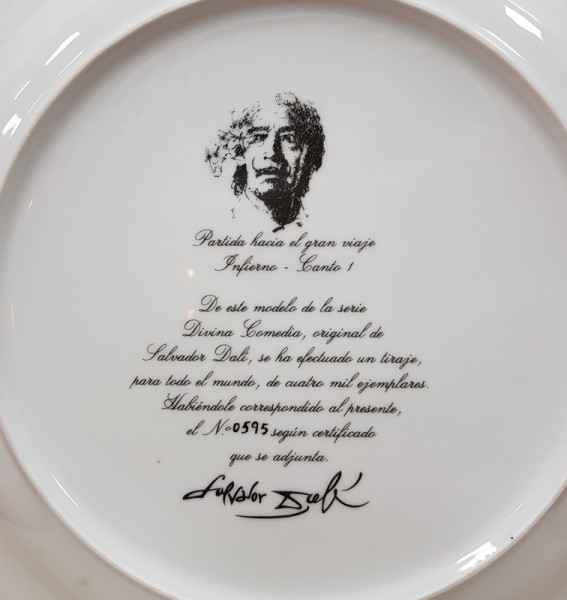 Partida hacia el gran viaje
Infierno - Canto 1
De este modelo de la serie
Divina Comedia, original de
Salvador Dalí, se ha efectuado un tiraje,
para todo el mundo, de cuatro mil ejemplares.
Habiéndole correspondido al presente,
el N.o 0595 según certificado
que se adjunta.
Salvador Dalí